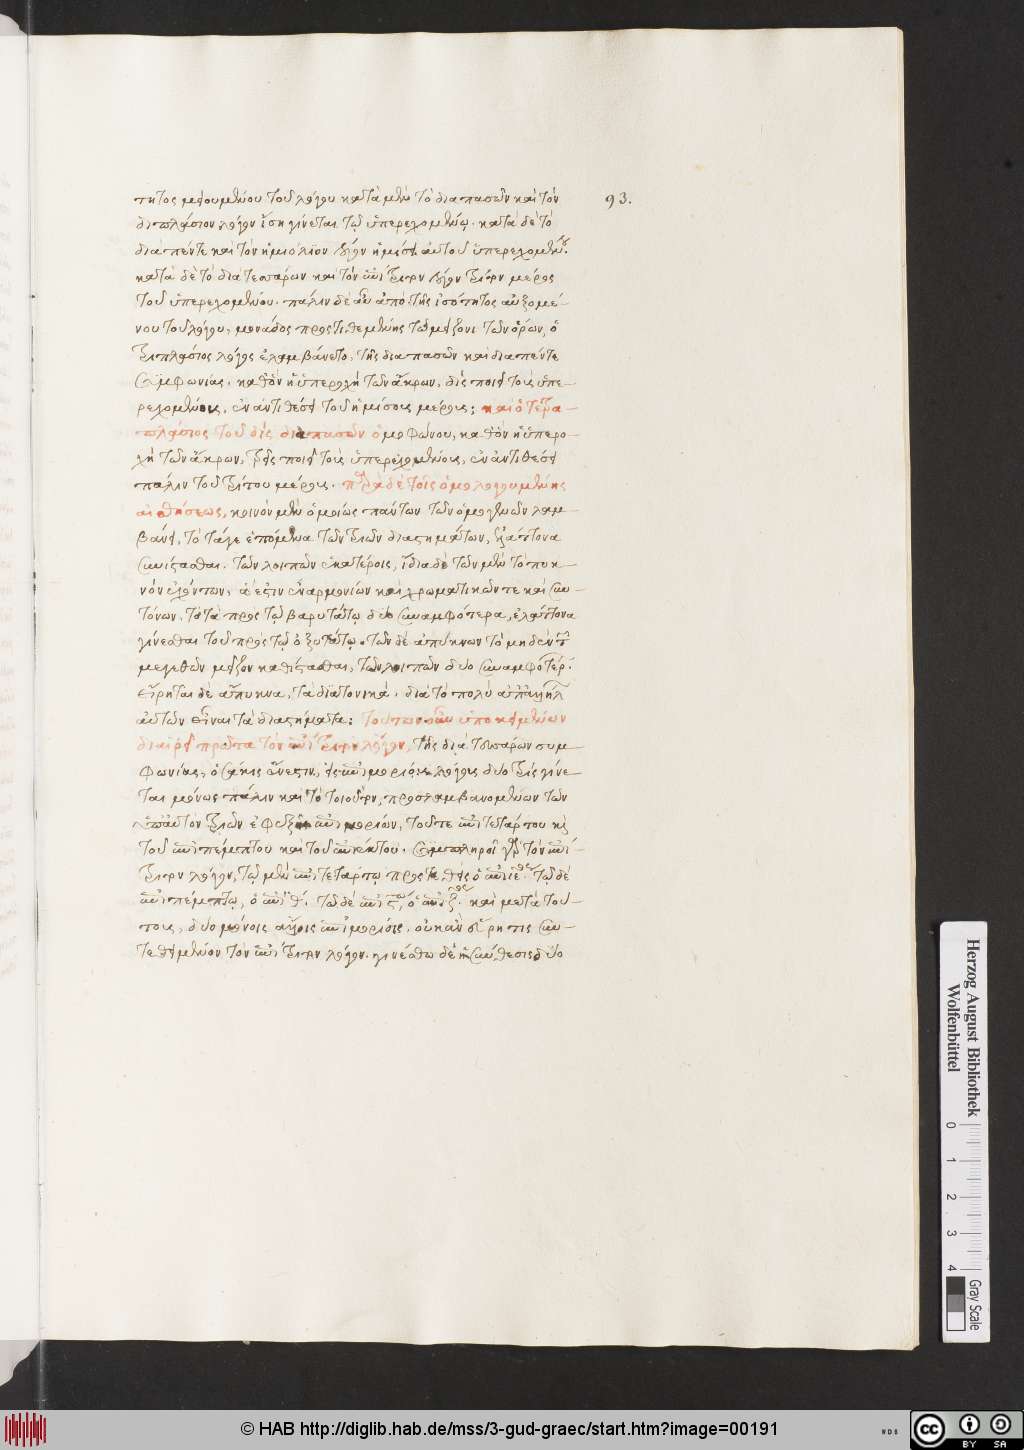 93.
τητος μειουμένου τοῦ λόγου κατὰ μὲν τὸ διαπασῶν καὶ τὸν
διπλάσιον λόγον ἴση γίνεται τῷ ὑπερεχομένῳ. κατὰ δὲ τὸ
διαπέντε καὶ τὸν ἡμιόλιον λόγον ἡμίσει αὐτοῦ ὑπερεχομένου.
κατὰ δὲ τὸ διὰ τεσσάρων καὶ τὸν ἐπίτριτον λόγον τρίτον μέρος
τοῦ ὑπερεχομένου. πάλιν δὲ αὖ ἀπὸ τῆς ἰσότητος αὐξομέ-
νου τοῦ λόγου, μονάδος προστιθεμένης τῷ μείζονι τῶν ὅρων, ὁ
τριπλάσιος λόγος ἐλαμβάνετο, τῆς διαπασῶν καὶ διαπέντε
συμφωνίας. καθ' ὃν ἡ ὑπεροχὴ τῶν ἄκρων, δὶς ποιεῖ τοὺς ὑπε-
ρεχομένους, ἐν ἀντιθέσει τοῦ ἡμίσους μέρους; καὶ ὁ τετρα-
πλάσιος τοῦ δὶς διαπασῶν ὁμοφώνου, καθ' ὃν ἡ ὑπερο-
χὴ τῶν ἄκρων, τρὶς ποιεῖ τοὺς ὑπερεχομένους, ἐν ἀντιθέσει
πάλιν τοῦ τρίτου μέρους. παρὰ δὲ τοῖς ὁμολογουμένης
αἰσθήσεως, κοινὸν μὲν ὁμοίως πάντων τῶν ὁμογενῶν λαμ-
βάνει, τὸ τά γε ἑπόμενα τῶν τριῶν διαστημάτων, ἐλάττονα
συνίστασθαι. τῶν λοιπῶν ἑκατέροις, ἴδια δὲ τῶν μὲν τὸ πυκ-
νὸν ἐχόντων, ἅ ἐστιν ἐναρμονίων καὶ χρωματικῶν τε καὶ συν-
τόνων. τὸ τὰ πρὸς τῷ βαρυτάτῳ δύο συναμφότερα, ἐλάττονα
γίνεσθαι τοῦ πρὸς τῷ ὀξυτάτῳ. τῶν δὲ ἀπύκνων τὸ μηδὲν τῶν
μεγεθῶν μεῖζον καθίστασθαι, τῶν λοιπῶν δύο συναμφοτέρων.
εἴρηται δὲ ἄπυκνα, τὰ διατονικά. διὰ τὸ πολὺ
αὐτῶν εἶναι τὰ διαστήματα: τούτων οὖν ὑποκειμένων
διαιρεῖ πρῶτα τὸν ἐπίτριτον λόγον, τῆς διὰ τεσσάρων συμ-
φωνίας, ὁσάκις ἔνεστιν, εἰς ἐπιμορίους λόγους δύο τρὶς γίνε
ται μόνως πάλιν καὶ τὸ τοιοῦτον, προσλαμβανομένων τῶν
ὑπ' αὐτὸν τριῶν ἐφεξῆς ἐπιμορίων, τοῦ τε ἐπιτετάρτου καὶ
τοῦ ἐπιπέμπτου καὶ τοῦ ἐφέκτου. συμπληροῖ γὰρ τὸν ἐπί-
τριτον λόγον, τῷ μὲν ἐπιτετάρτῳ προστεθεὶς ὁ ἐπὶ ιε. τῷ δὲ
ἐπιπέμπτῳ, ὁ ἐπὶ θ. τῷ δὲ ἐπὶ ϛ, ὁ ἐπὶ ζ. καὶ μετὰ τού-
τους, δύο μόνοις ἄλλοις ἐπιμορίοις. οὐκ ἂν εὕρῃ τις συν-
τεθειμένον τὸν ἐπίτριτον λόγον. γινέσθω δὲ ἡ σύνθεσις δύο
Herzog August Bibliothek
Wolfenbüttel
0 1 2 3 4
Gray Scale
© HAB http://diglib.hab.de/mss/3-gud-graec/start.htm?image=00191
cc BY SA